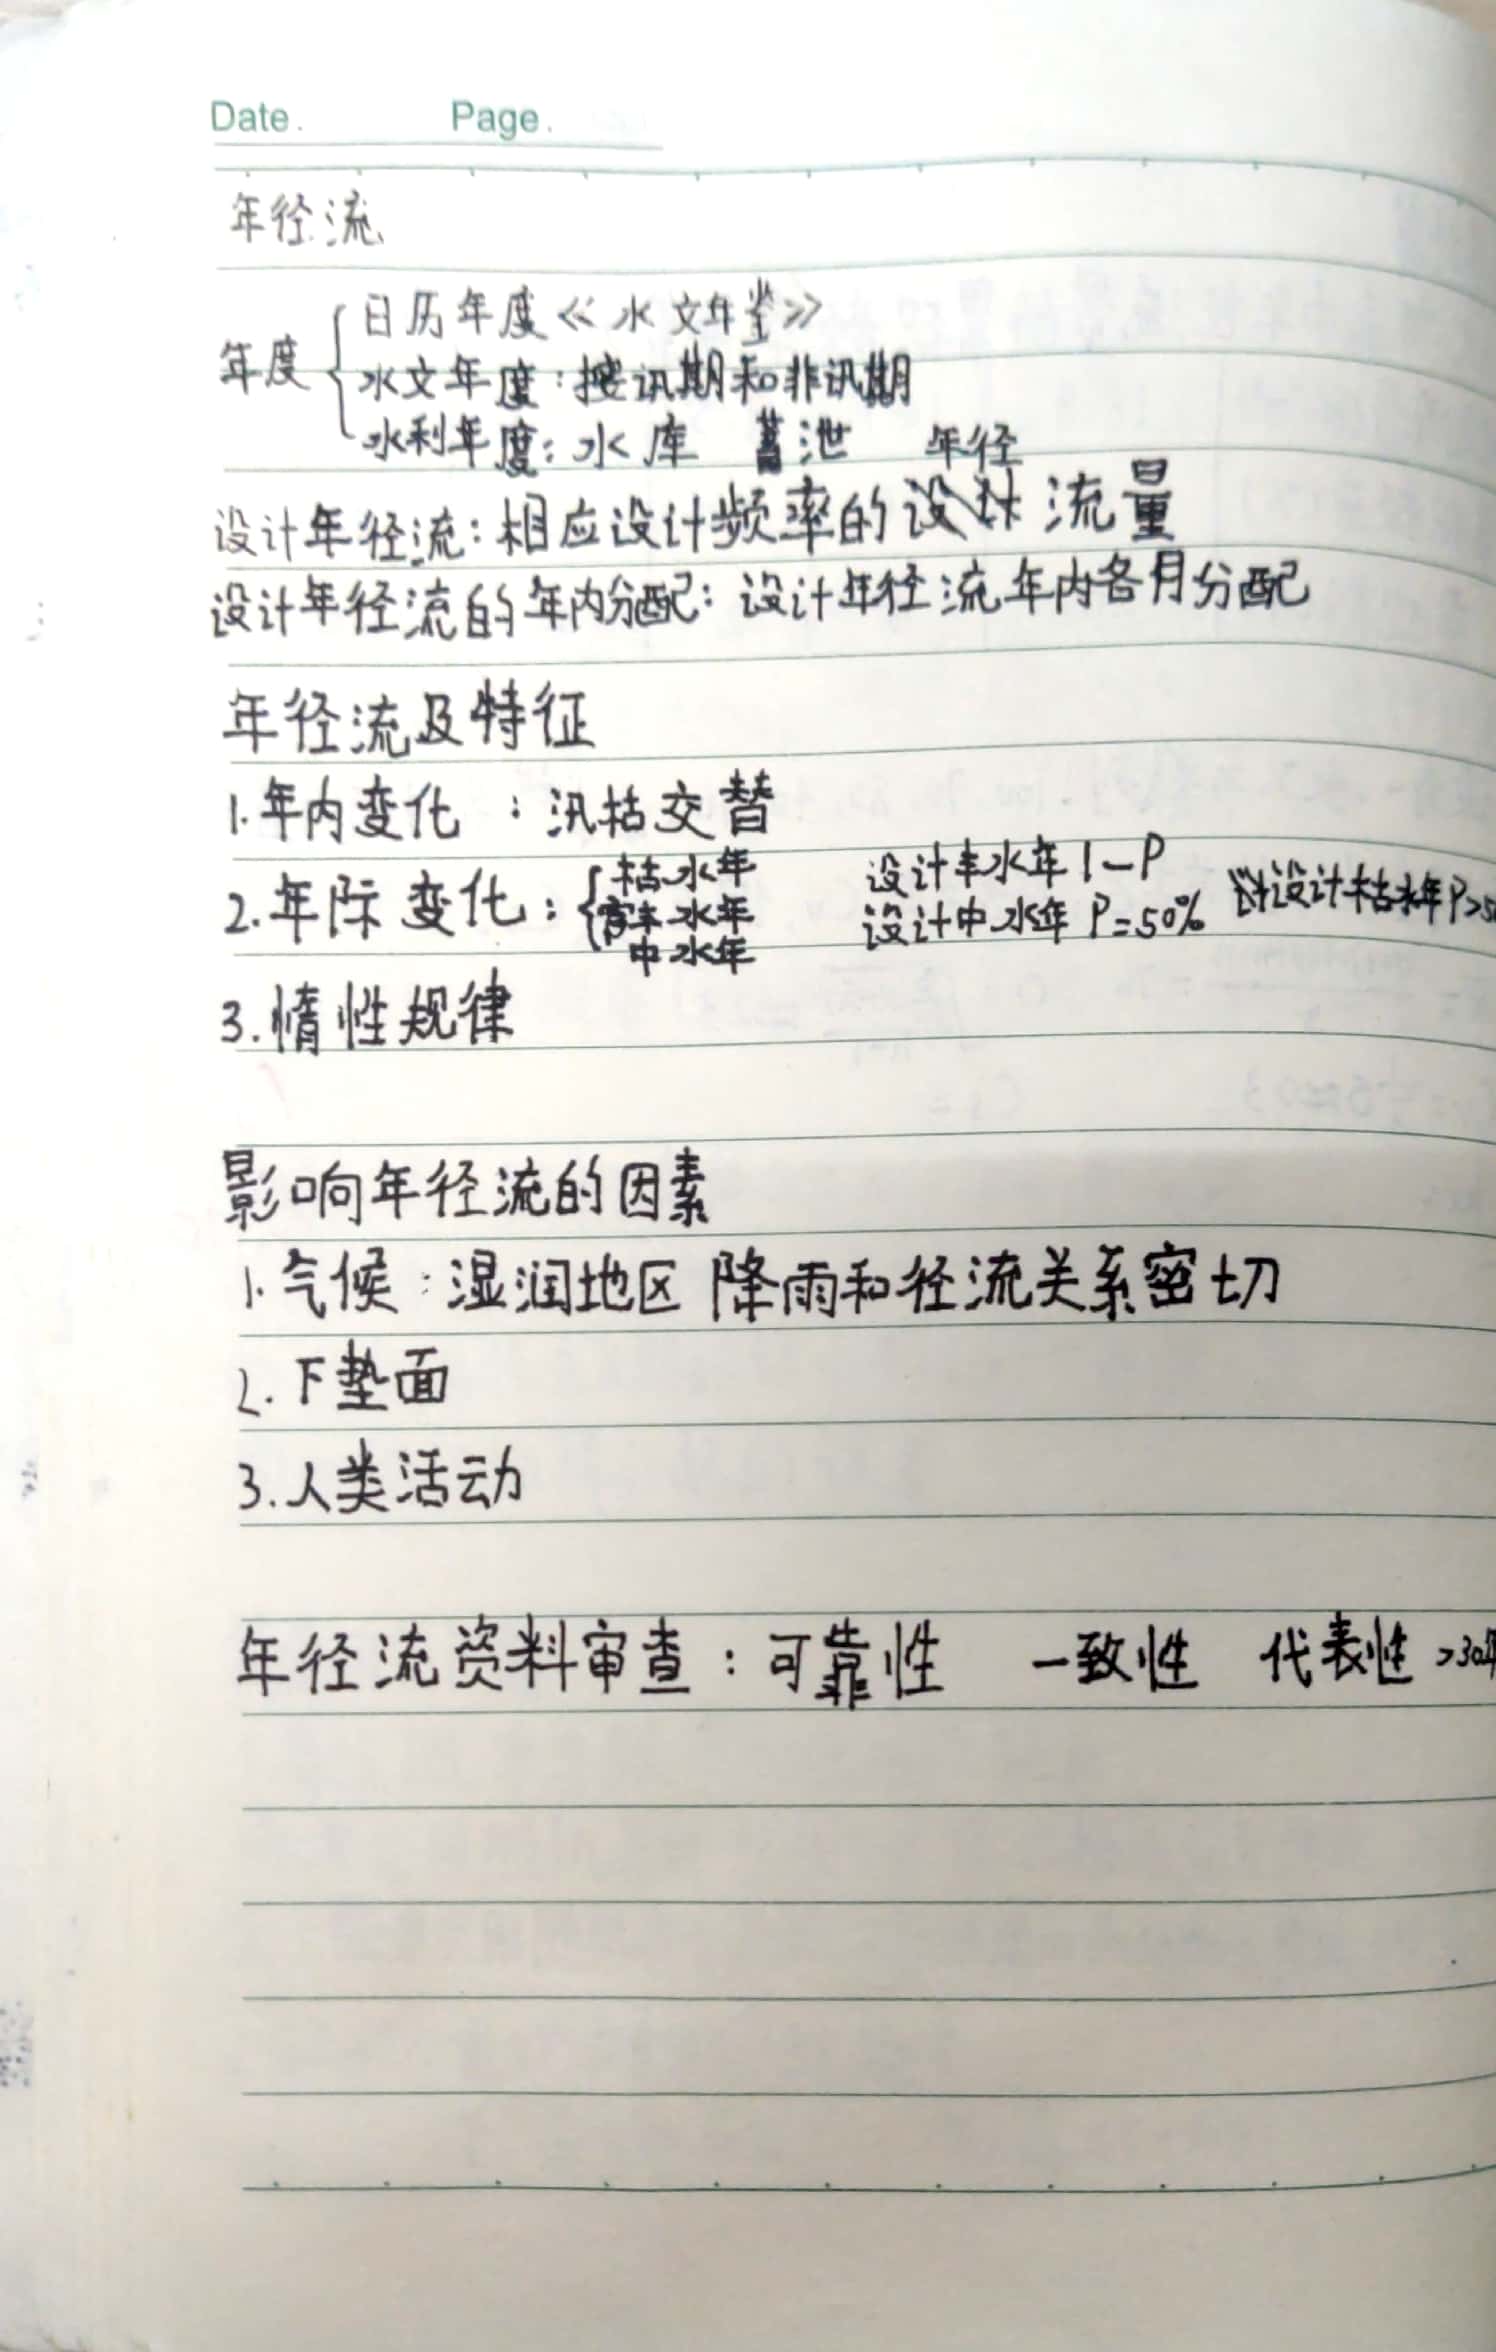 Date. Page.
年径流
年度
日历年度《水文年鉴》
水文年度:按汛期和非汛期
水利年度:水库 蓄泄 年径
设计年径流:相应设计频率的 流量
设计年径流的年内分配:设计年径流年内各月分配
年径流及特征
1.年内变化 :汛枯交替
枯水年 设计丰水年 1-P
2.年际变化: 丰水年 设计中水年 P=50% 设计枯水年P>
中水年
3.惰性规律
影响年径流的因素
1.气候:湿润地区 降雨和径流关系密切
2.下垫面
3.人类活动
年径流资料审查:可靠性 一致性 代表性 >30年